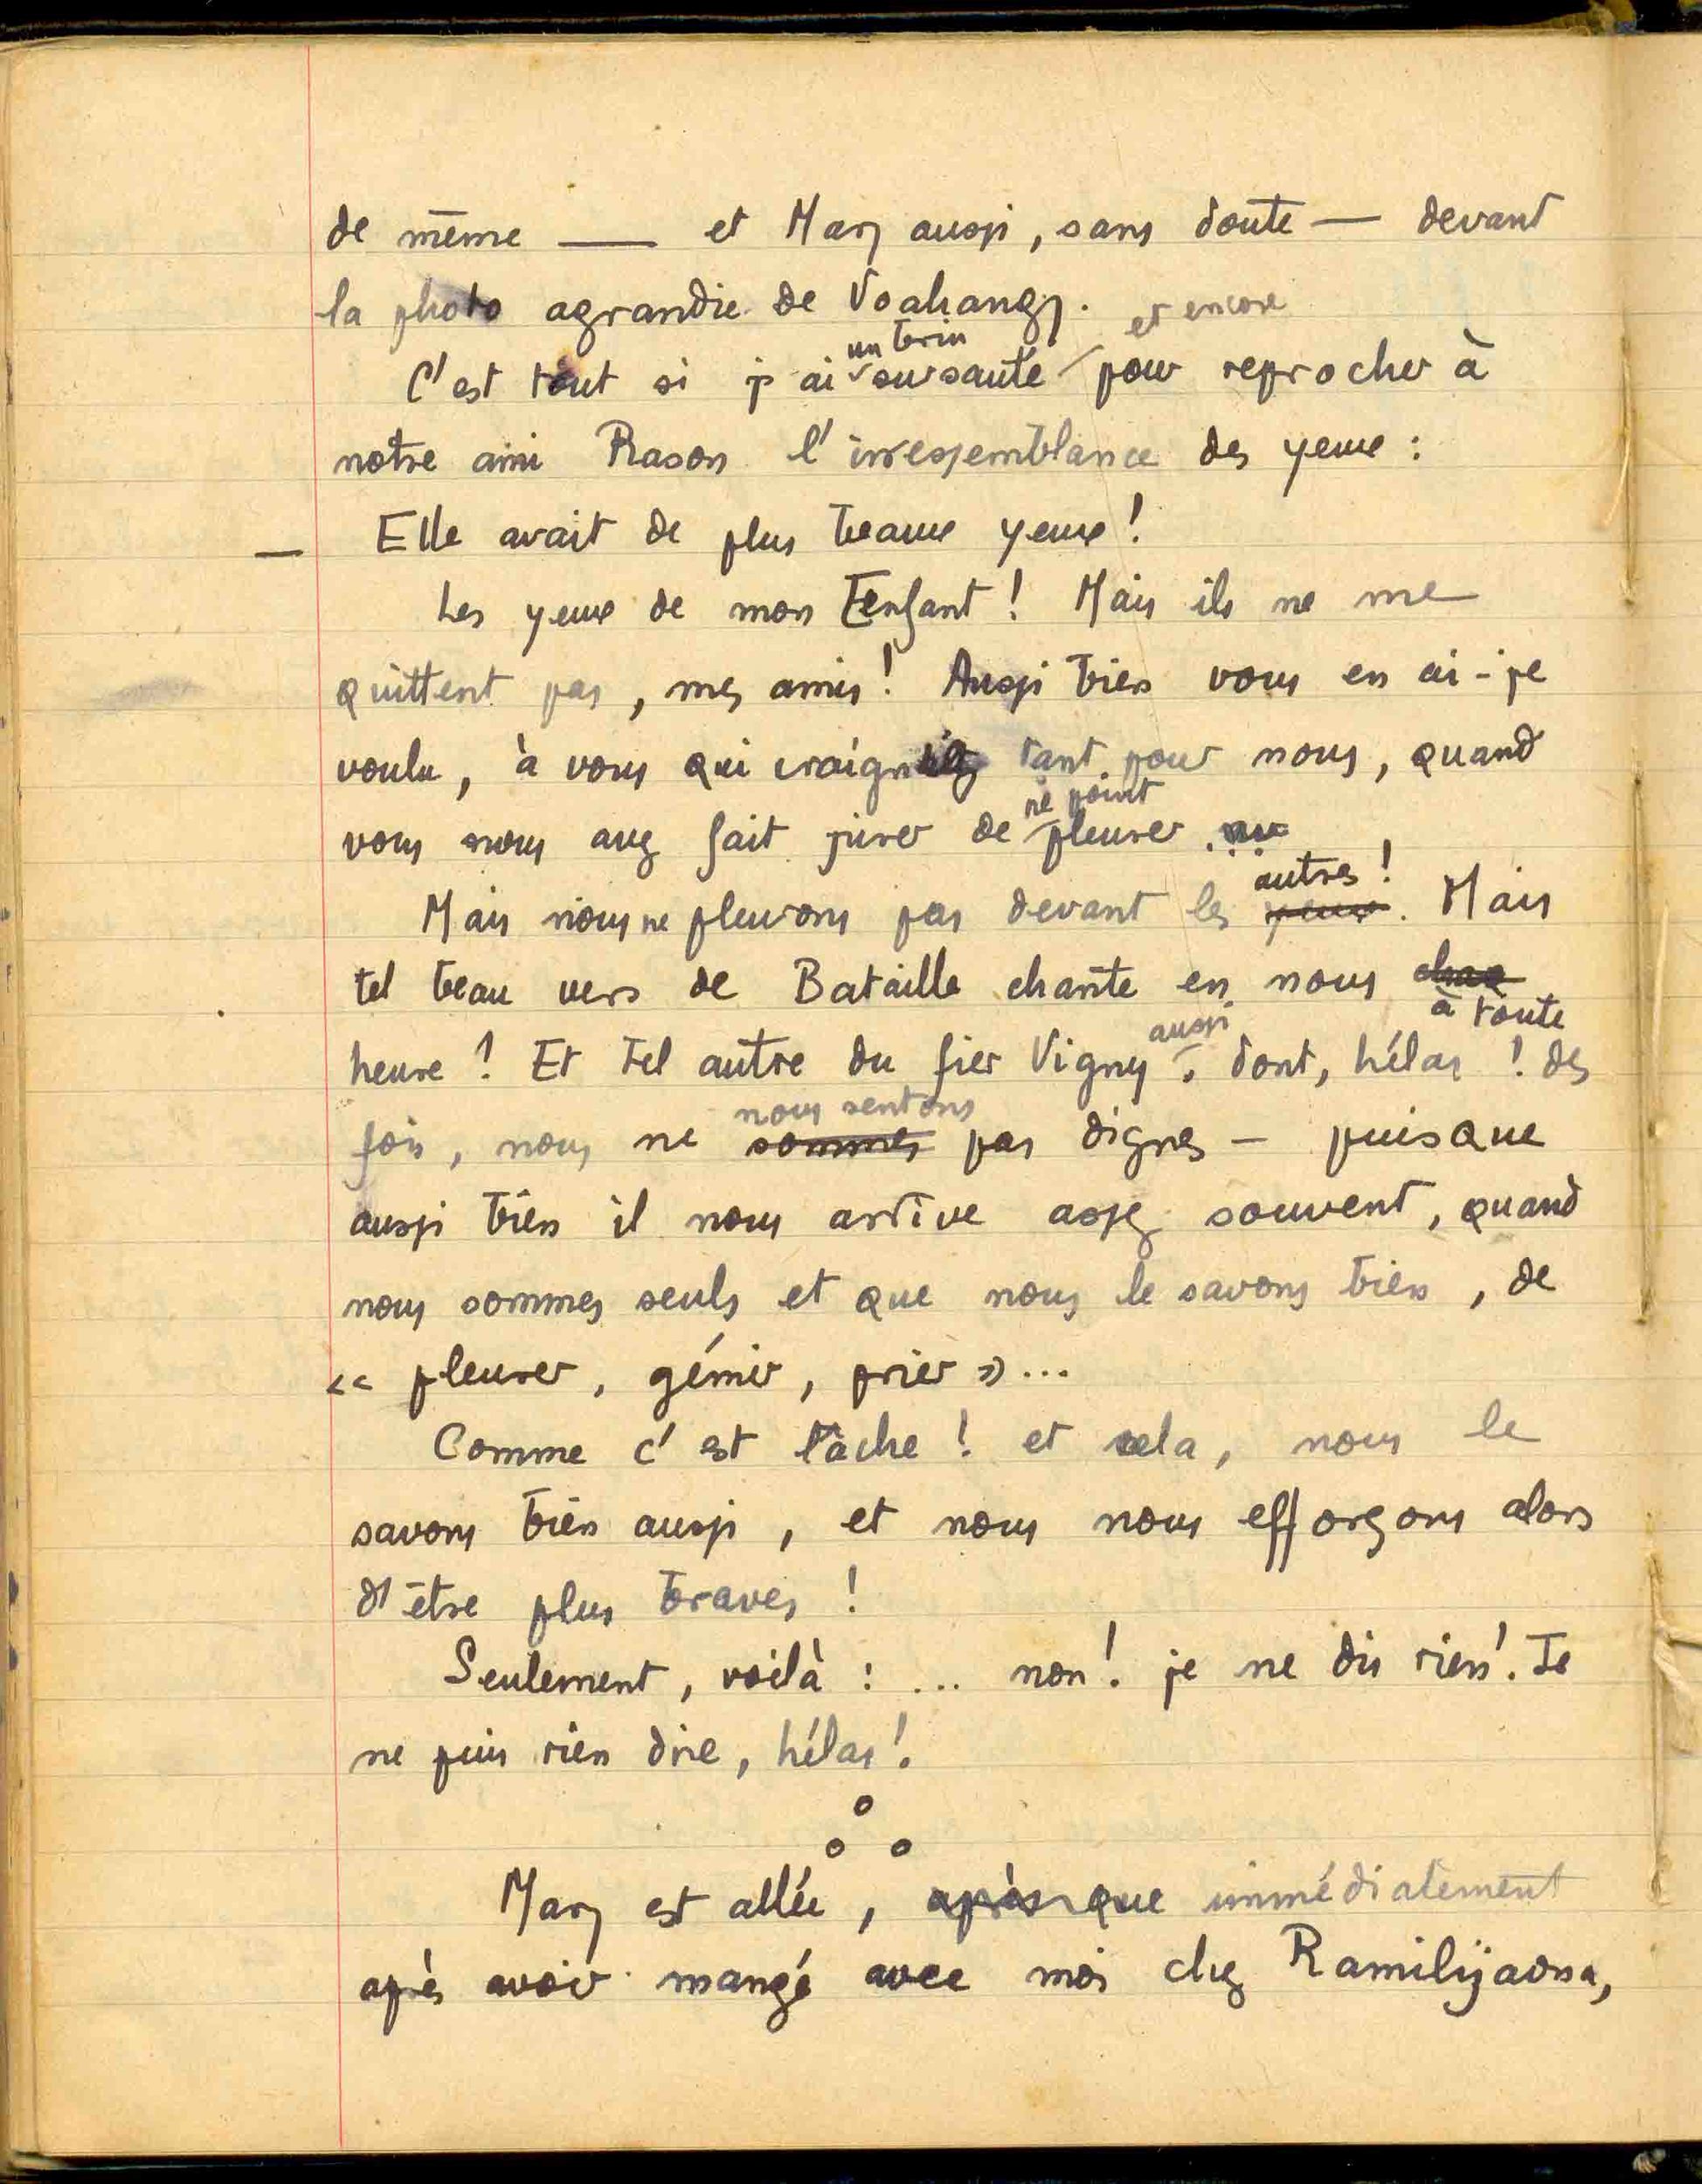 de même — et Mary aussi, sans doute — devant
la photo agrandie de Voahangy.
C'est tout si j'ai un brin sursauté et encore pour reprocher à
notre ami Rason l'irressemblance des yeux :
— Elle avait de plus beaux yeux !
Les yeux de mon Enfant ! Mais ils ne me
quittent pas, mes amis ! Aussi bien vous en ai-je
voulu, à vous qui craignez tant pour nous, quand
vous nous avez fait jurer de ne point pleurer
Mais nous ne pleurons pas devant les yeux autres ! Mais
tel beau vers de Bataille chante en nous à toute
heure ! Et tel autre du fier Vigny aussi, dont, hélas ! des
fois, nous ne sommes nous sentons pas dignes — puisque
aussi bien il nous arrive assez souvent, quand
nous sommes seuls et que nous le savons bien, de
« pleurer, gémir, prier »...
Comme c'est lâche ! et cela, nous le
savons bien aussi, et nous nous efforçons alors
d'être plus braves !
Seulement, voilà : ... non ! je ne dis rien ! Je
ne puis rien dire, hélas !
Mary est allée, après que immédiatement
après avoir mangé avec moi chez Ramilijaona,